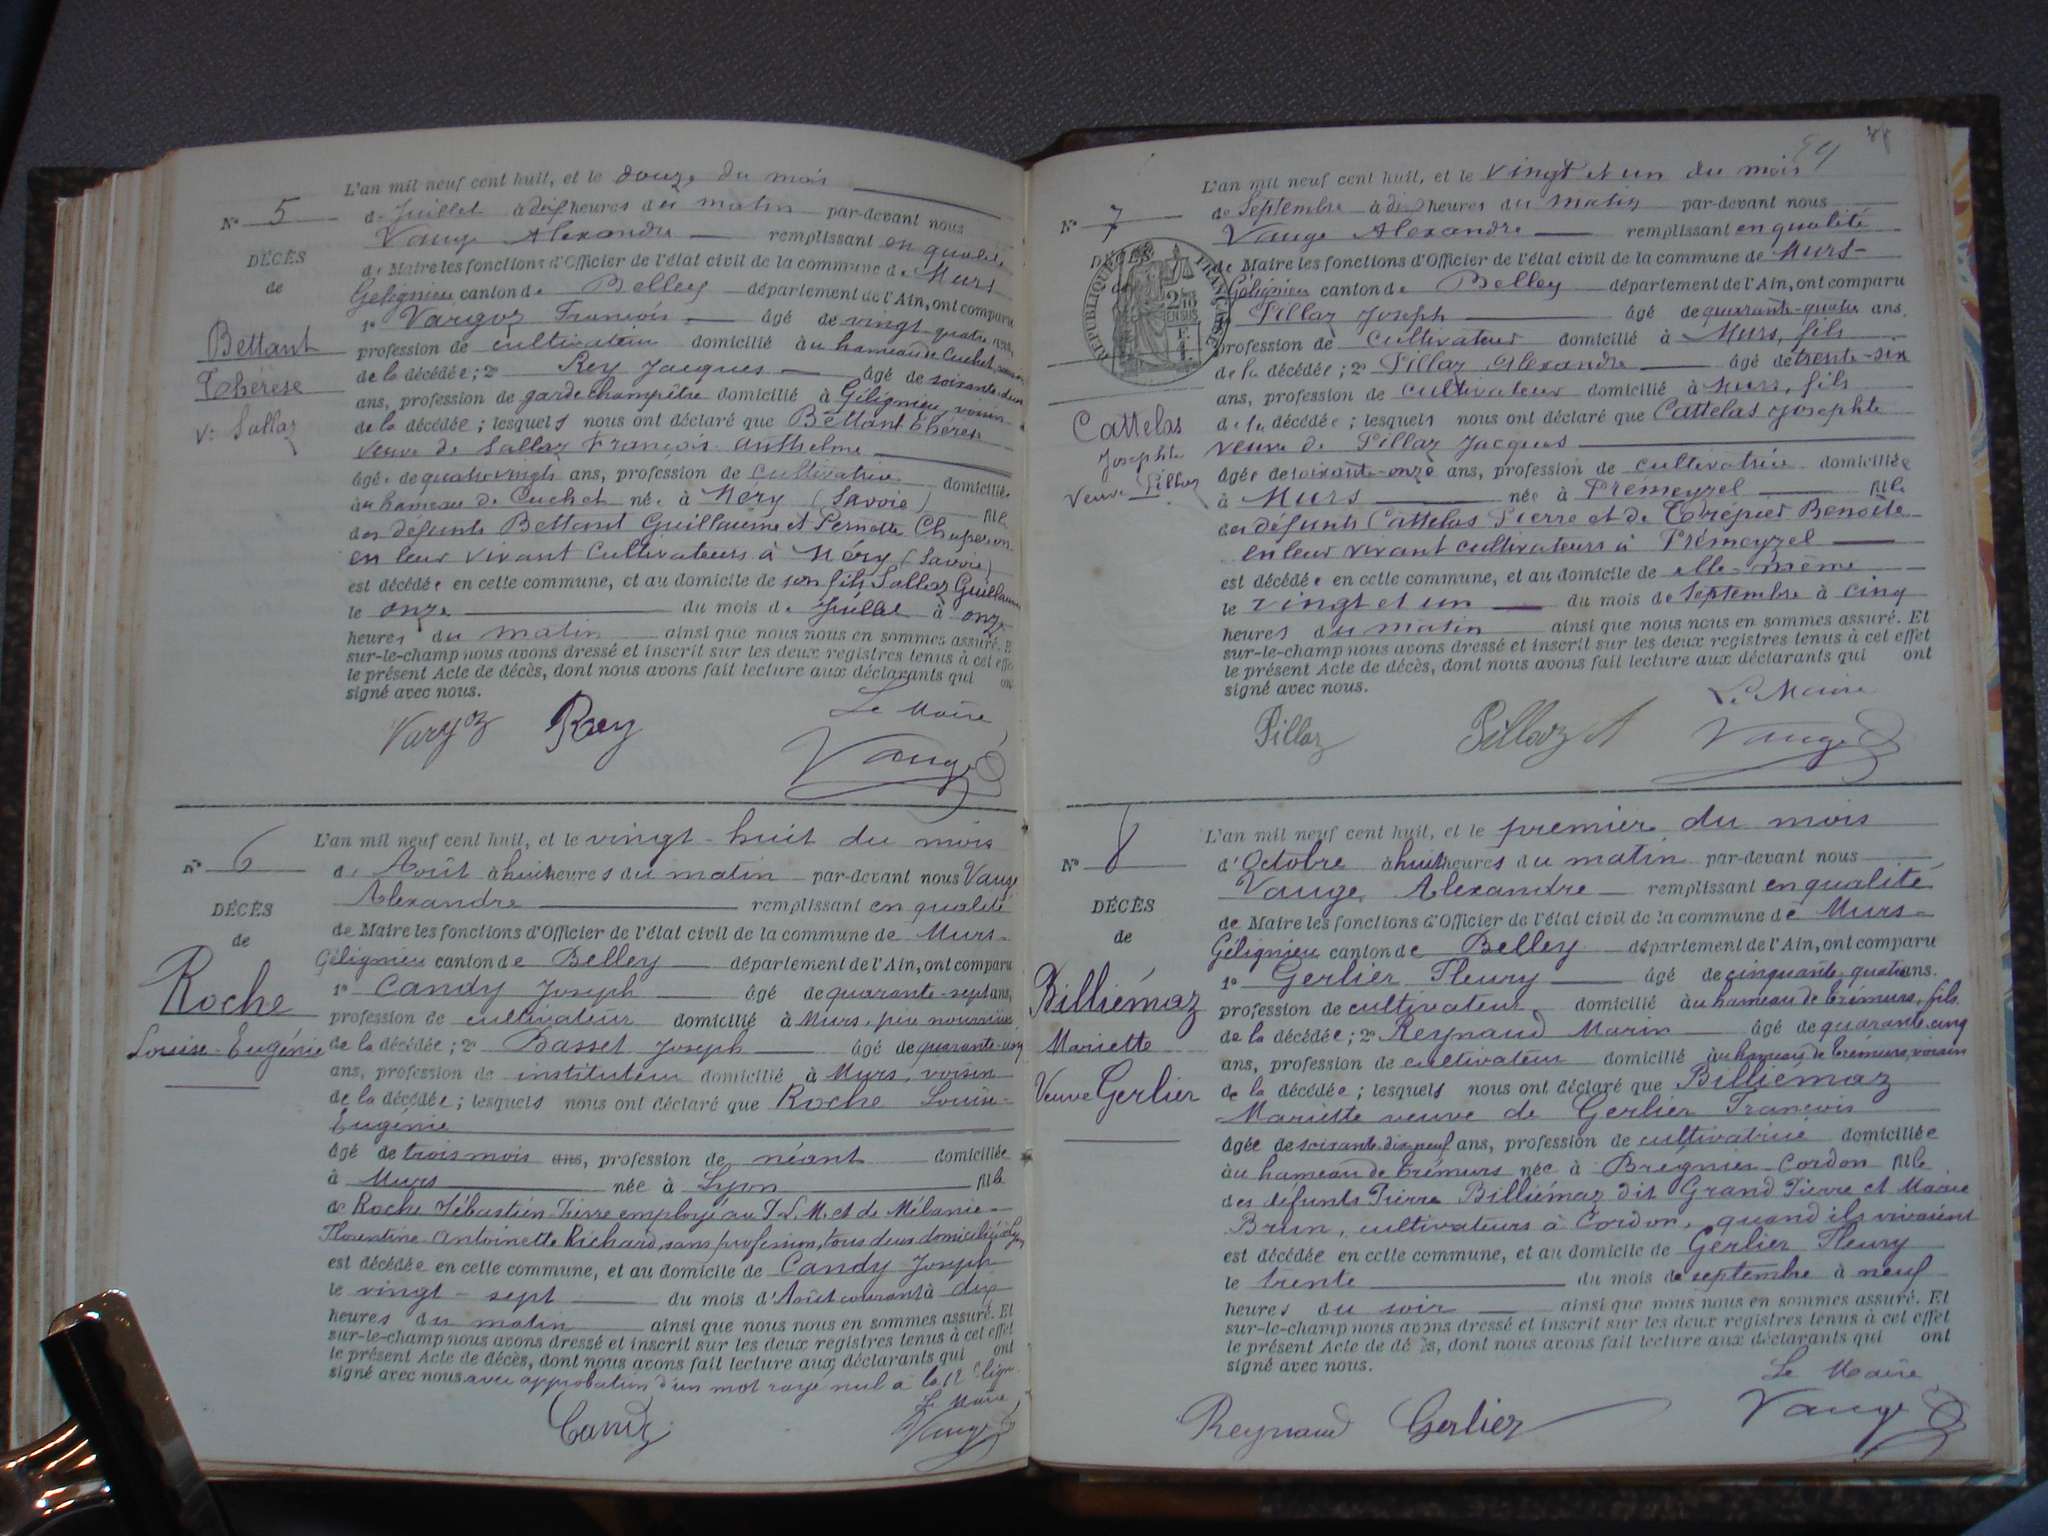 L'an mil neuf cent huit, et le douze du mois
N° 5
de Juillet à dix heures du matin par-devant nous
Vauge Alexandre remplissant en qualité
DÉCÈS
de Maire les fonctions d'Officier de l'état civil de la commune de Murs
de
Gélignieu canton de Belley département de l'Ain, ont comparu
1° Vargoz François âgé de vingt-quatre ans,
Bettant
profession de cultivateur domicilié au hameau de Cuchet,
Thérèse
de la décédée ; 2° Rey Jacques âgé de soixante-deux
ans, profession de garde champêtre domicilié à Gélignieu, voisin
Ve Sallaz
de la décédée ; lesquels nous ont déclaré que Bettant Thérèse
veuve de Sallaz François Anthelme
âgée de quatre vingts ans, profession de cultivatrice domiciliée
au hameau de Cuchet née à Méry (Savoie) fille
des défunts Bettant Guillaume et Pernette Chaperon
en leur vivant cultivateurs à Méry (Savoie)
est décédée en cette commune, et au domicile de son fils Sallaz Guillaume
le onze du mois de Juillet à onze
heures du matin ainsi que nous nous en sommes assuré. Et
sur-le-champ nous avons dressé et inscrit sur les deux registres tenus à cet effet
le présent Acte de décès, dont nous avons fait lecture aux déclarants qui ont
signé avec nous.
Le Maire
Vargoz Rey
Vauge
L'an mil neuf cent huit, et le vingt-huit du mois
N° 6
d'Août à huit heures du matin par-devant nous Vauge
Alexandre remplissant en qualité
DÉCÈS
de Maire les fonctions d'Officier de l'état civil de la commune de Murs-
de
Gélignieu canton de Belley département de l'Ain, ont comparu
Roche
1° Candy Joseph âgé de quarante-sept ans,
profession de cultivateur domicilié à Murs, père nourricier
Louise-Eugénie
de la décédée ; 2° Basset Joseph âgé de quarante-cinq
ans, profession de instituteur domicilié à Murs, voisin
de la décédée ; lesquels nous ont déclaré que Roche Louise-
Eugénie
âgé de trois mois ans, profession de néant domiciliée
à Murs née à Lyon fille
de Roche Sébastien Pierre employé au P.L.M. et de Mélanie-
Florentine Antoinette Richard, sans profession, tous deux domiciliés à Lyon
est décédée en cette commune, et au domicile de Candy Joseph
le vingt-sept du mois d'Août courant à dix
heures du matin ainsi que nous nous en sommes assuré. Et
sur-le-champ nous avons dressé et inscrit sur les deux registres tenus à cet effet
le présent Acte de décès, dont nous avons fait lecture aux déclarants qui ont
signé avec nous avec approbation d'un mot rayé nul à la 12e ligne
Le Maire
Candy Vauge
L'an mil neuf cent huit, et le vingt et un du mois
N° 7
de Septembre à dix heures du matin par-devant nous
Vauge Alexandre remplissant en qualité
DÉCÈS
RÉPUBLIQUE FRANÇAISE
de Maire les fonctions d'Officier de l'état civil de la commune de Murs-
de
Gélignieu canton de Belley département de l'Ain, ont comparu
Pillaz Joseph âgé de quarante-quatre ans.
profession de cultivateur domicilié à Murs, fils
de la décédée ; 2° Pillaz Alexandre âgé de trente-six
ans, profession de cultivateur domicilié à Murs, fils
Cattelas
de la décédée ; lesquels nous ont déclaré que Cattelas Josephte
Josephte
veuve de Pillaz Jacques
Veuve Pillaz
âgée de soixante-onze ans, profession de cultivatrice domiciliée
à Murs née à Prémeyzel fille
des défunts Cattelas Pierre et de Trépier Benoîte
en leur vivant cultivateurs à Prémeyzel
est décédée en cette commune, et au domicile de elle-même
le vingt et un du mois de Septembre à cinq
heures du matin ainsi que nous nous en sommes assuré. Et
sur-le-champ nous avons dressé et inscrit sur les deux registres tenus à cet effet
le présent Acte de décès, dont nous avons fait lecture aux déclarants qui ont
signé avec nous.
Le Maire
Pillaz Pillaz A Vauge
L'an mil neuf cent huit, et le premier du mois
N° 8
d'Octobre à huit heures du matin par-devant nous
Vauge Alexandre remplissant en qualité
DÉCÈS
de Maire les fonctions d'Officier de l'état civil de la commune de Murs-
de
Gélignieu canton de Belley département de l'Ain, ont comparu
1° Gerlier Fleury âgé de cinquante-quatre ans.
Billiémaz
profession de cultivateur domicilié au hameau de Trémurs, fils
Mariette
de la décédée ; 2° Reynaud Marin âgé de quarante-cinq
ans, profession de cultivateur domicilié au hameau de Trémurs, voisin
Veuve Gerlier
de la décédée ; lesquels nous ont déclaré que Billiémaz
Mariette veuve de Gerlier François
âgée de soixante-dix-neuf ans, profession de cultivatrice domiciliée
au hameau de Trémurs née à Bregnier-Cordon fille
des défunts Pierre Billiémaz dit Grand Pierre et Marie
Brun, cultivateurs à Cordon, quand ils vivaient
est décédée en cette commune, et au domicile de Gerlier Fleury
le trente du mois de septembre à neuf
heures du soir ainsi que nous nous en sommes assuré. Et
sur-le-champ nous avons dressé et inscrit sur les deux registres tenus à cet effet
le présent Acte de décès, dont nous avons fait lecture aux déclarants qui ont
signé avec nous.
Le Maire
Reynaud Gerlier Vauge